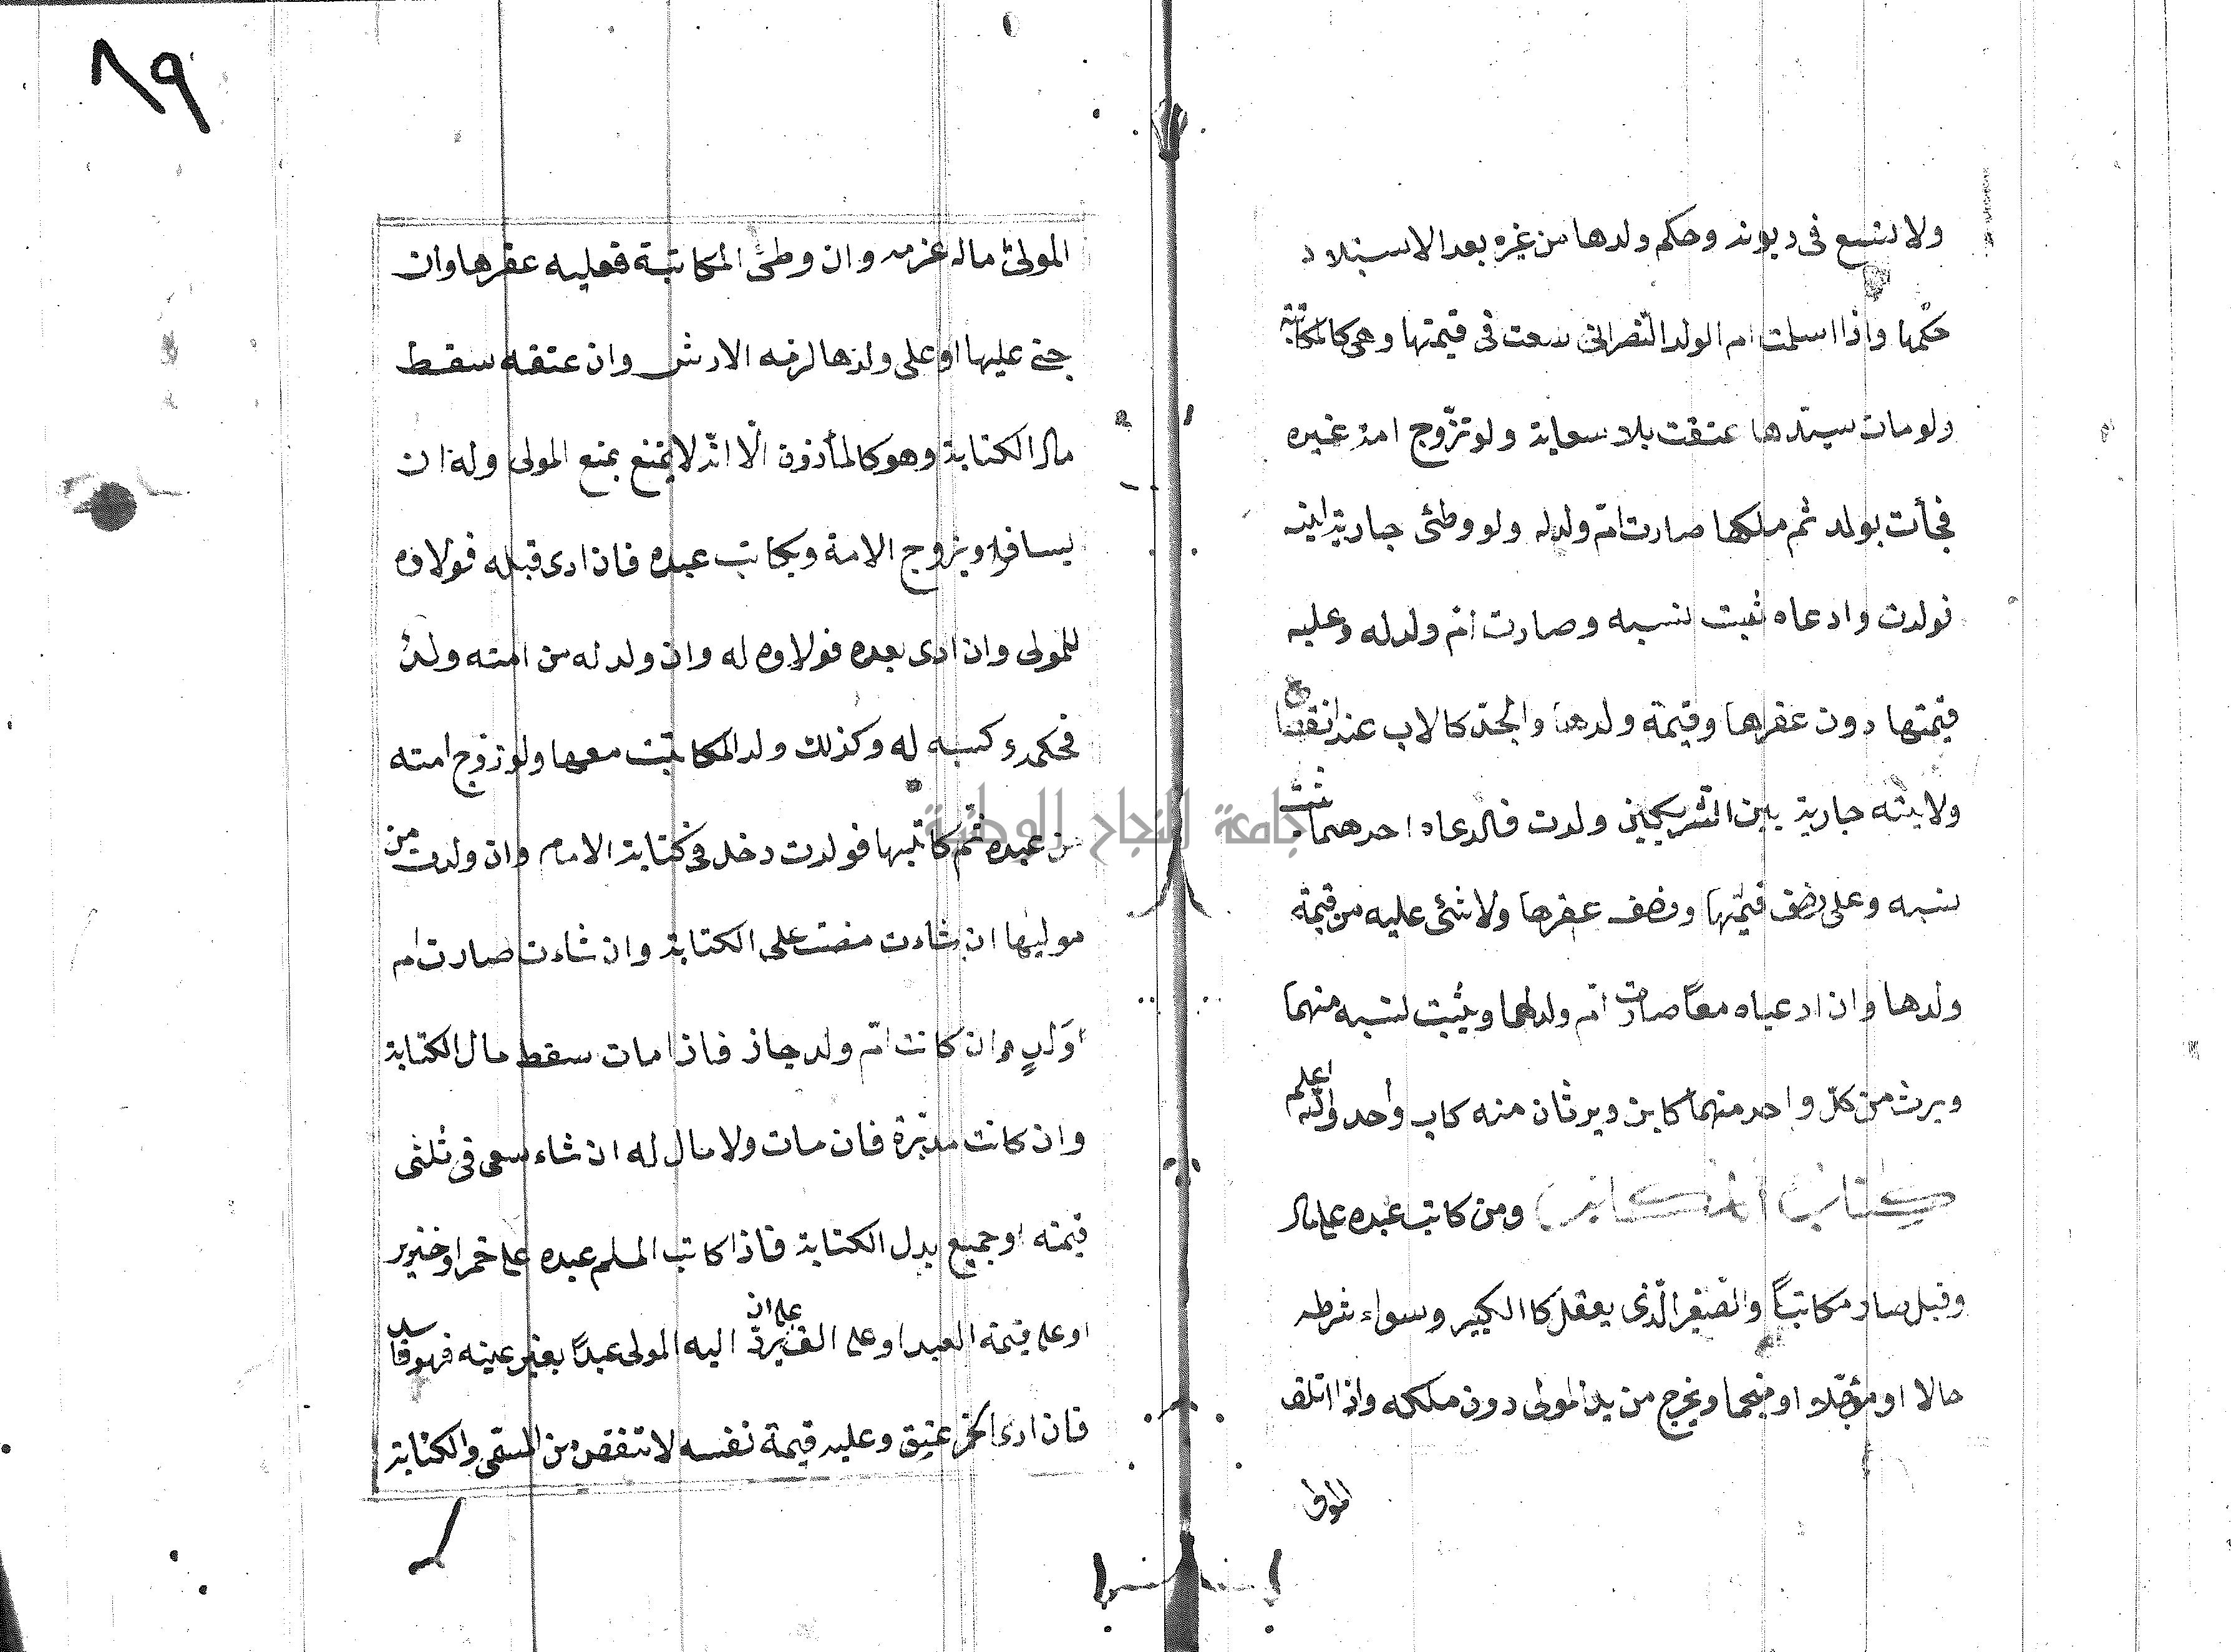 ولا تسع فى ديونه وحكم ولدها من غيره بعد الاستيلاد
حكمها واذا اسلمت ام الولد النصرانى سعت فى قيمتها وهى كالمكاتبة
ولو مات سيّدها عتقت بلا سعاية ولو تزّوج امة غيره
فجأت بولد ثم ملكها صارت امّ ولد له ولو وطئى جارية ابنه
فولدت وادعاه ثبت نسبه وصارت امّ ولد له وعليه
قيمتها دون عقرها وقيمة ولدها والجدّ كالاب عند انقطاع
ولايته جارية بين الشريكين ولدت فادعاه احدهما ثبت
نسبه وعلى نصف قيمتها ونصف عقرها ولا شئى عليه من قيمة
ولدها وان ادعياه معاً صارت امّ ولد لهما ويثبت نسبه منهما
ويرث من كلّ واحد منهما كابن ويرثان منه كاب واحد والله اعلم
كتاب المكاتب ومن كاتب عبده على مال
وقبل صار مكاتباً والصغير الّذى يعقل كا الكبير وسواء شرطه
حالا او مؤجّلا او منجما ويخرج من يد المولى دون ملكه واذا اتلف
المولى
٨٩
المولى ماله غرمه وان وطئ المكاتبة فعليه عقرها وان
جنى عليها او على ولدها لزمه الارش وان عتقه سقط
مال الكتابة وهو كالمأذون الّا انّه لا يمنع بمنع المولى وله ان
يسافر ويزوج الامة ويكاتب عبده فان ادى قبله فولاوه
للمولى وان ادى بعده فولاوه له وان ولد له من امته ولد
فحكمه وكسبه له وكذلك ولد المكاتبت معها ولو زوج امته
من عبده ثم كاتبها فولدت دخل فى كتابة الامام وان ولدت من
موليها ان شاءت مضت على الكتابة وان شاءت صارت ام
اولدٍ وان كانت امّ ولد جاز فاذا مات سقط مال الكتابة
وان كانت مدبّرة فان مات ولا مال له ان شاء سعى فى ثلثى
قيمته او جميع بدل الكتابة فاذا كاتب المسلم عبده على خمر او خنزير
او على قيمة العبد او على الف على ان يردّ اليه المولى عبدًا بغير عينه فهو فاسد
فان ادى الخمر عتق وعليه قيمة نفسه لا تنقص من المسمى والكتابة
جامعة النجاح الوطنية